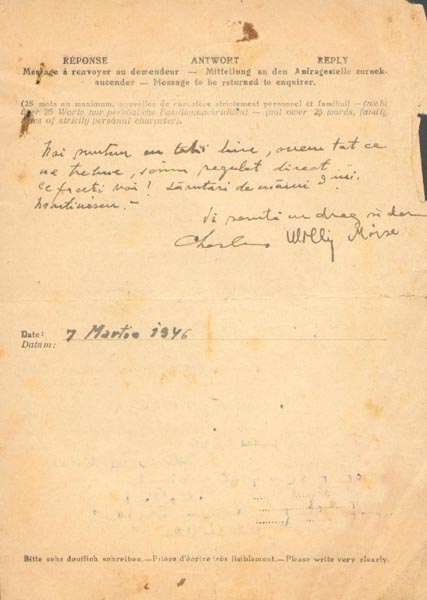 RÉPONSE ANTWORT REPLY
Message à renvoyer au demandeur — Mitteilung an den Anfragestelle zurueck-
zusenden — Message to be returned to enquirer.
(25 mots au maximum, nouvelles de caractère strictement personnel et familial) — (nicht
über 25 Worte nur persönliche Familiennachrichten) — (not over 25 words, family
news of strictly personal character).
Noi suntem cu toţii bine, avem tot ce
ne trebue, scrim regulat direct.
Ce faceti voi? Sărutări de mâini
Martinescu.
Vă sărută cu drag și dor
Charles Willy
Date: 7 Martie 1946
Datum:
Bitte sehr deutlich schreiben.—Prière d'écrire très lisiblement.—Please write very clearly.